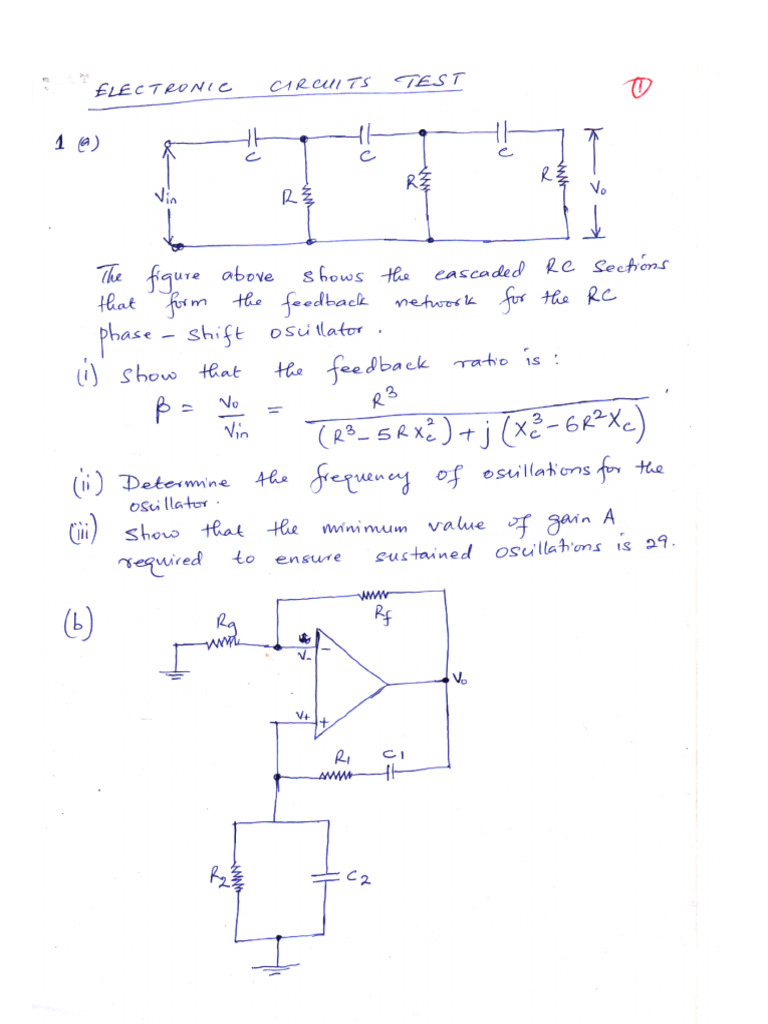 ELECTRONIC CIRCUITS TEST
1
1 (a)
C C C
Vin R R R Vo
The figure above shows the cascaded RC sections
that form the feedback network for the RC
phase - shift oscillator.
(i) Show that the feedback ratio is :
β = Vo/Vin = R³/((R³ - 5RXc²) + j(Xc³ - 6R²Xc)) .
(ii) Determine the frequency of oscillations for the
oscillator.
(iii) Show that the minimum value of gain A
required to ensure sustained oscillations is 29.
(b)
Rg Rf
V- -
Vo
V+ +
R1 C1
R2 C2